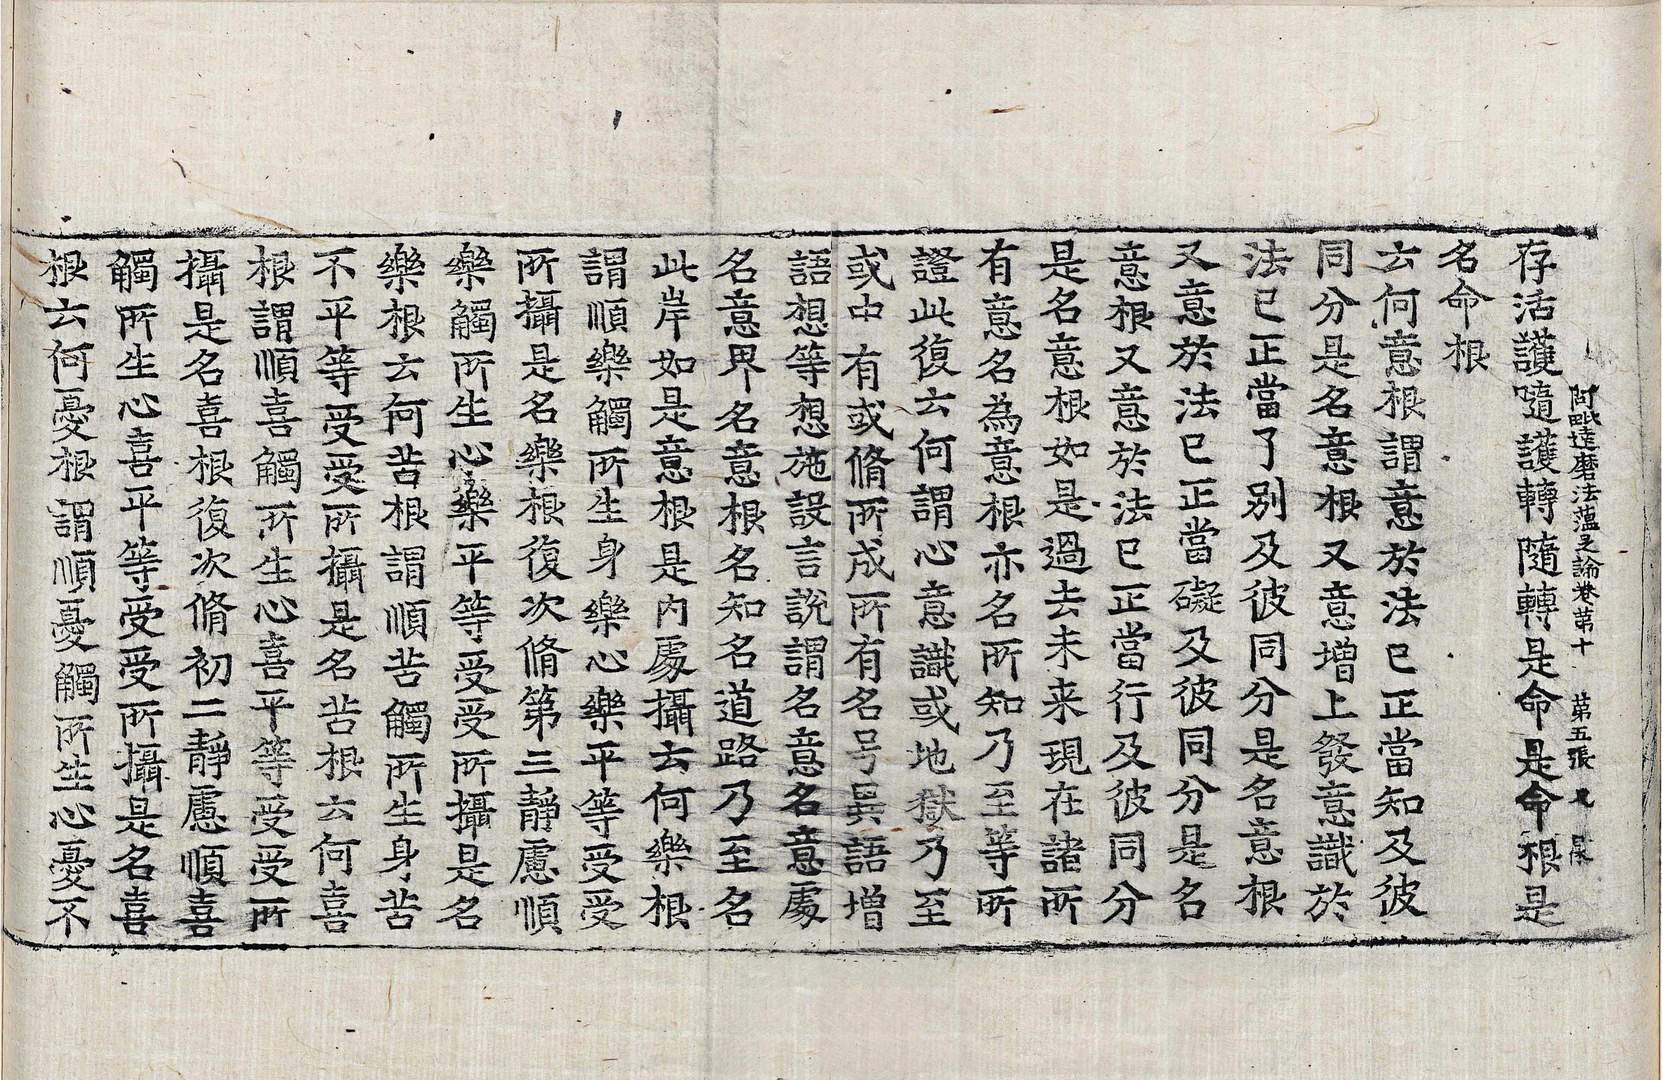 阿毗達磨法蘊足論卷第十 第五張
存活護隨護轉隨轉是命是命根是
名命根
云何意根謂意於法已正當知及彼
同分是名意根又意增上發意識於
法已正當了别及彼同分是名意根
又意於法已正當礙及彼同分是名
意根又意於法已正當行及彼同分
是名意根如是過去未来現在諸所
有意名為意根亦名所知乃至等所
證此復云何謂心意識或地獄乃至
或中有或脩所成所有名号異語增
語想等想施設言說謂名意名意處
名意界名意根名知名道路乃至名
此岸如是意根是内處攝云何樂根
謂順樂觸所生身樂心樂平等受受
所攝是名樂根復次脩第三靜慮順
樂觸所生心樂平等受受所攝是名
樂根云何苦根謂順苦觸所生身苦
不平等受受所攝是名苦根云何喜
根謂順喜觸所生心喜平等受受所
攝是名喜根復次脩初二靜慮順喜
觸所生心喜平等受受所攝是名喜
根云何憂根謂順憂觸所生心憂不